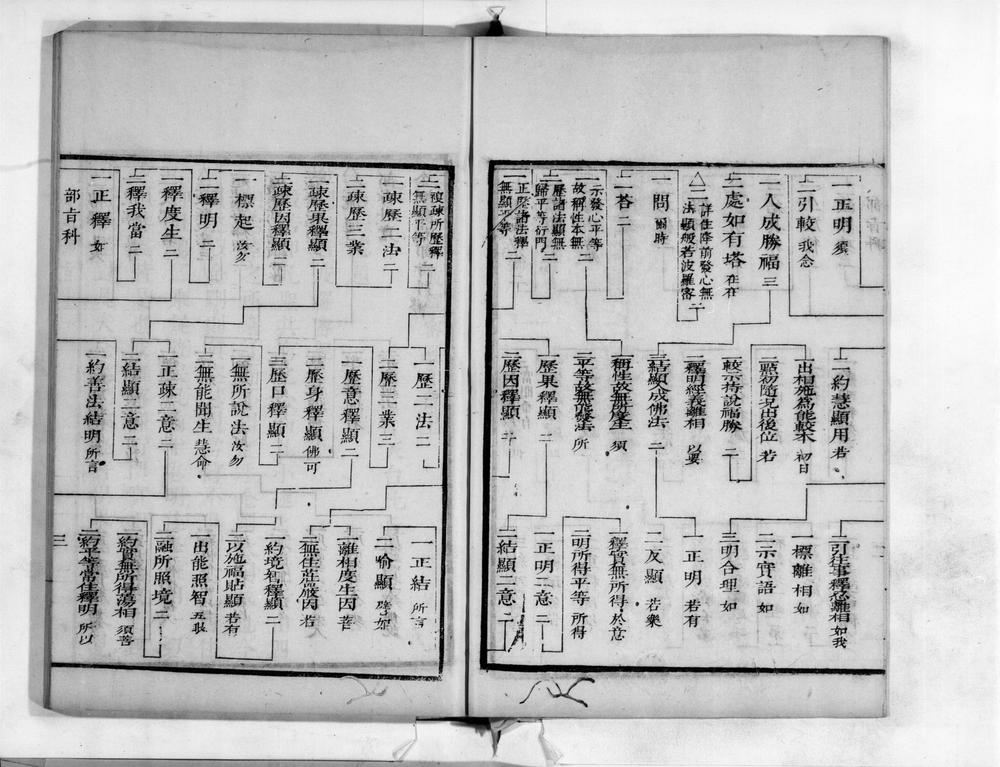 一正明 須
二引較 我念
一人成勝福 三
二處如有塔 在在
二詳住降前發心無
法顯般若波羅密 二
一問 爾時
二答 二
一示發心平等
故稱性本無 二
二歷諸法顯無
歸平等行門 二
一正歷諸法釋
無顯平等 二
二約慧顯用 若
一出相施為能較本 初日
二顯初隨況出後位 若
較示持說福勝 二
二釋明經義離相 以要
三結顯人成佛法 二
稱性故無所度生 須
平等故無所修法 所
一歷果釋顯 二
二歷因釋顯 二
二引往事釋忍離相 如我
一標離相 如
二示實語 如
三明合理 如
一正明 若有
二反顯 若樂
一釋實無所得 於意
二明所得平等 所得
一正明二意 二
二結顯二意 二
二複疎所歷釋
無顯平等 二
一疎歷二法 二
二疎歷三業
一疎歷果釋顯 二
二疎歷因釋顯 二
一標起 汝勿
二釋明 二
一釋度生 二
二釋我當 二
一正釋 如
部旨科
一歷二法 二
二歷三業 三
一歷意釋顯 二
二歷身釋顯 佛可
三歷口釋顯 二
一無所說法 汝勿
二無能聞生 慧命
一正疎二意 二
二結顯二意 二
一約善法結明 所言
一正結 所言
二喻顯 譬如
一離相度生因 菩
二無住莊嚴因 若
一約境智釋顯 二
二以施福貼顯 若有
一出能照智 五眼
二融所照境 二
一約實無所得蕩相 須菩
二約平等常住釋明 所以
三